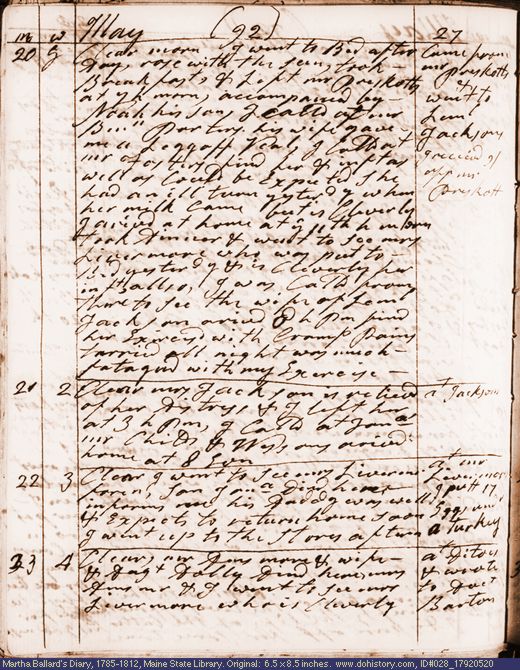 May (92) 27
20 G Clear morn I went to Bed after
Day, rose with the sun, took
Breakfast & Left mr Preskotts
at 7 h morn accompanied by
Noah his son. I calld at mr
Ben Porters, his wife gave
me a Legg off Veal. I Calld at
mr Fosters, find her & infant
well as Could be Expected She
had a ill turn yesterdy when
her milk Came but is Cleverly
I arivd at home at 11 h morn
took Dinner & went to see mrs
Livermore who was put to
Bed yesterdy & is Cleverly her
in Hallow, I was Calld from
there to see the wife of Leml
Jackson arivd 8 h Pm find
her Exercisd with Cramp Pains
tarried all night was much
fatagud with my Exercise
Came from
mr Preskotts
& went to
Leml
Jacksons
receivd 9/
off mr
Preskott
21 2 Clear mrs Jackson is relievd
of her Distress & I left her
at 3 h Pm, I Calld at Jonas
mr Childs & Wessons arivd
home at 8 Evn
at Jackson
22 3 Clear I went to see mrs Livermore
informs me his Daddy was well
& Expects to return home soon
I went up to the Stores afternn
at mr
Livermores
I put 17
Eggs under
a turkey
23 4 Clear, mr Ams more & wife
& Dagt Dolly Dind here, mrs
Ams mr & I went to see mrs
Livermore who is Cleverly
at Ditos
& wrote
to Doct
Barton
Martha Ballard's Diary, 1785-1812, Maine State Library. Original: 6.5 x 8.5 inches. www.dohistory.com, ID#028_17920520